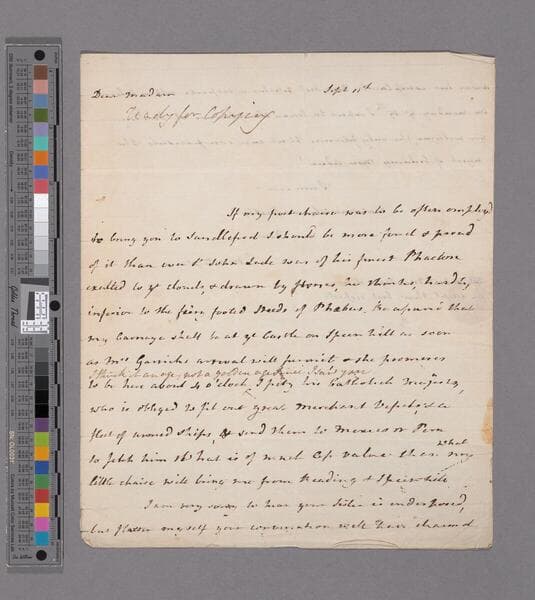 Dear Madam Sept 11th
Ready for Copying
If my post chaise was to be often employ'd
to bring you to Sandleford I should be more fond & proud
of it than ever Sr John Lade was of his finest Phaeton
exalted to ye clouds, & drawn by horses, he thinks, hardly
inferior to the fiery footed Steeds of Phœbus. Be assured that
my Carriage shall be at ye Castle on Speen hill as soon
as Mrs Garricks arrival will permit & she promises
I think it an age, not a golden age since I saw you
to be here about 4 o'clock. I pity his Catholick Majesty,
who is obliged to fit out great Merchant Vessels, & a
fleet of armed ships, & send them to Mexico or Peru
what
to fetch him what is of much less value than my
little chaise will bring me from Reading & Speenhill
I am very sorry to hear your Sister is indisposed,
but flatter myself your conversation will have charmed